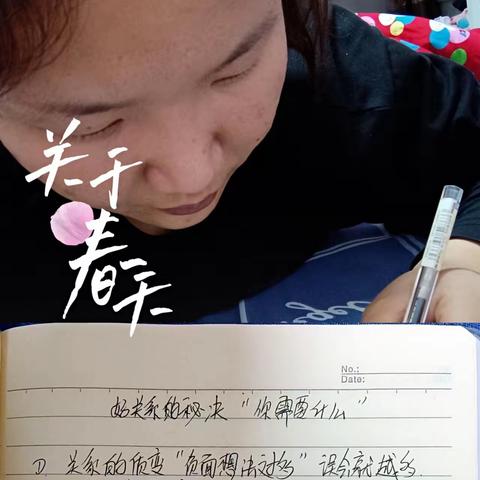 关于
春天
No.:
Date:
好关系的秘决 "你需要什么"
1) 关系的质变 "负面想法过多" 误会就越多.